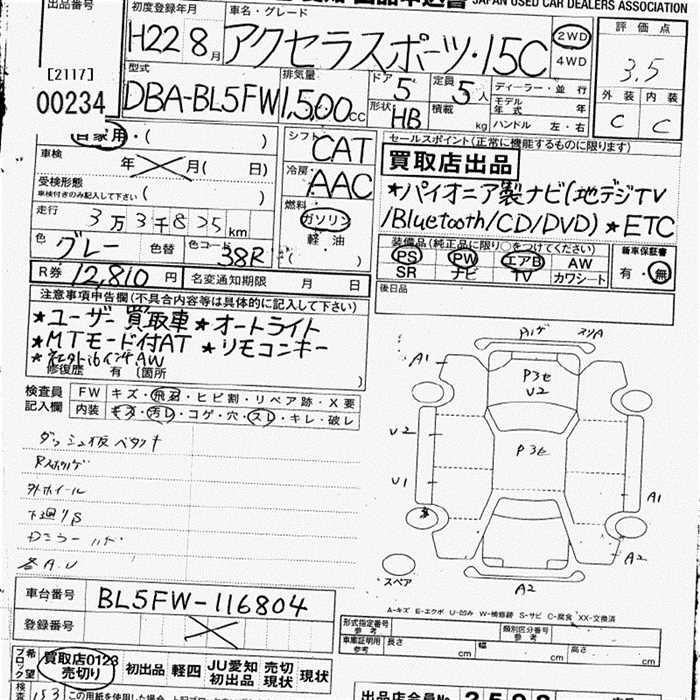 出品番号
JAPAN USED CAR DEALERS ASSOCIATION
初度登録年月
H22 8月
車名・グレード
アクセラスポーツ・15C
2WD
4WD
評価点
3.5
外装 内装
C C
[2117]
00234
型式
DBA-BL5FW
排気量
1,500cc
ドア
5
形状
HB
定員
5人
積載
kg
ディーラー・並行
モデル年式 年
ハンドル 左・右
自家用・( )
車検
年 月( 日)
受検形態
車検付きのみ記入して下さい ( )
走行
3万3千825km
色 グレー 色替 色コード 38R
シフト
CAT
冷房
AAC
燃料
ガソリン
軽油
( )
セールスポイント(正常に機能するものに限ります)
買取店出品
★パイオニア製ナビ(地デジTV
/Bluetooth/CD/DVD) ★ETC
装備品(純正品に限り○をつけてください)
PS PW エアB AW
SR ナビ TV カワシート
新車保証書
有・無
後日品
R券 12,810円 名変通知期限 月 日
注意事項申告欄(不具合内容等は具体的に記入して下さい)
★ユーザー買取車 ★オートライト
★MTモード付AT ★リモコンキー
修復歴 有 (箇所 )
検査員記入欄
FW キズ・飛石・ヒビ割・リペア跡・X要
内装 キズ・汚レ・コゲ・穴・スレ・キレ・破レ
外ホイール
各A.U
A1
P3セ
U2
U2
P3セ
U1
A1
A2
スペア
A2
A-キズ E-エクボ U-凹み W-補修跡 S-サビ C-腐食 XX-交換済
車台番号 BL5FW-116804
登録番号
形式指定番号 参考
類別区分番号 参考
車庫証明用 参考 長さ cm 幅 cm 高さ cm
希望ブロック
買取店0123 売切り
初出品 軽四 JU愛知初出品 売切現状 現状
検査
153
出品店会員No
3598